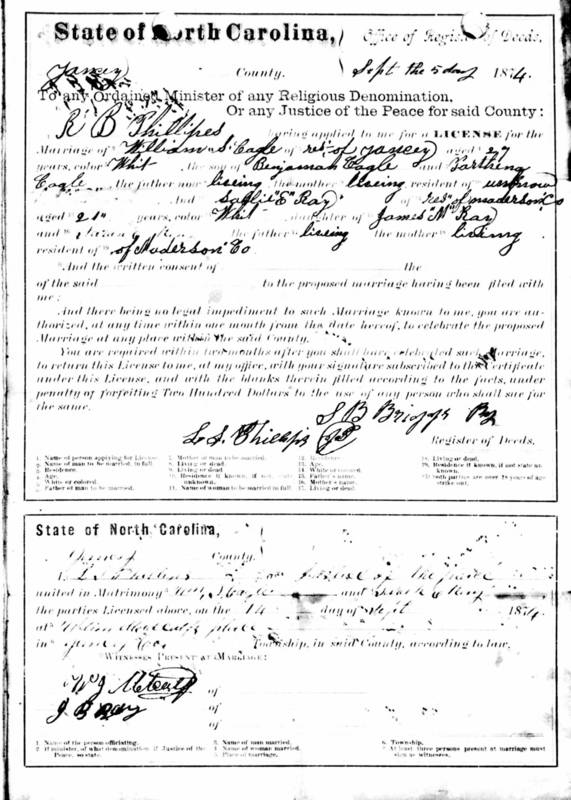 State of North Carolina, Office of Register of Deeds.
Yancey County. Sept the 5 day 1874.
To any Ordained Minister of any Religious Denomination,
Or any Justice of the Peace for said County:
R B Phillipes having applied to me for a LICENSE for the
Marriage of William S Eagle of res. of Yancey aged 27
years, color Whit, the son of Benjaman Eagle and
Eagle the father now liveing, the mother liveing, resident of unknow
And Sallie "E" Ray of res of maderson Co
aged 21 years, color Whit daughter of James M Ray
and the father liveing the mother living
resident of of Maderson Co
And the written consent of the
of the said to the proposed marriage having been filed with
me:
And there being no legal impediment to such Marriage known to me, you are au-
thorized, at any time within one month from this date hereof, to celebrate the proposed
Marriage at any place within the said County.
You are required within two months after you shall have celebrated such Marriage,
to return this License to me, at my office, with your signature subscribed to the Certificate
under this License, and with the blanks therein filled according to the facts, under
penalty of forfeiting Two Hundred Dollars to the use of any person who shall sue for
the same.
S B Briggs
L S Phillips Register of Deeds.
1. Name of person applying for License.
2. Name of man to be married, in full.
3. Residence.
4. Age.
5. White or colored.
6. Father of man to be married.
7. Mother of man to be married.
8. Living or dead.
9. Living or dead.
10. Residence if known, if not, state
unknown.
11. Name of woman to be married in full.
12. Residence.
13. Age.
14. White or colored.
15. Father's name.
16. Mother's name.
17. Living or dead.
18. Living or dead.
19. Residence if known, if not state un-
known.
20. If both parties are over 18 years of age
strike out.
State of North Carolina,
Yancey County.
united in Matrimony and
the parties Licensed above, on the 14 day of Sept 1874
at place
in Yancey Co. Township, in said County, according to law.
WITNESSES PRESENT AT MARRIAGE:
W J Metcalf of
J B Ray of
of
1. Name of the person officiating.
2. If minister, of what denomination, if Justice of the
Peace, so state.
3. Name of man married.
4. Name of woman married.
5. Place of marriage.
6. Township.
7. At least three persons present at marriage must
sign as witnesses.